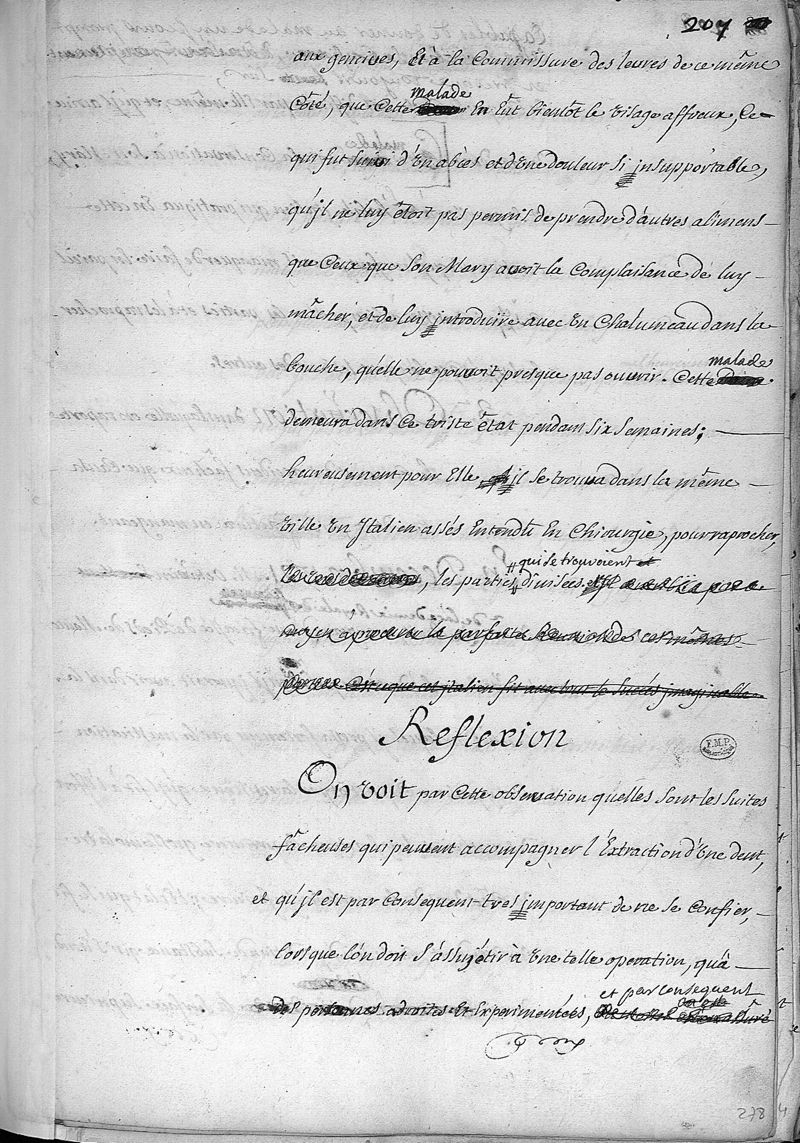 207
aux gencives, et à la Commissure des levres de ce même
Côté, que Cette malade En Eut bientôt le visage affreux, Ce
qui fut suivi d'Un abcés et d'Une douleur si insupportable,
qu'il ne luy étoit pas permis de prendre d'autres alimens
que Ceux que Son Mary avoit la Complaisance de luy
mâcher, et de luy introduire avec Un Chalumeau dans la
bouche, qu'elle ne pouvoit presque pas ouvrir. Cette malade
demeura dans Ce triste état pendant six semaines;
heureusement pour Elle il se trouva dans la même
ville Un Italien assés Entendu En Chirurgie, pour raprocher,
les parties qui se trouvoient divisées
C'est que cet italien fit avec tout le succés imaginable
Reflexion
On voit par Cette observation quelles sont les suites
fâcheuses qui peuvent accompagner l'Extraction d'Une dent,
et qu'il est par Consequent tres important de ne se Confier,
lorsque l'on doit s'assujétir à Une telle operation, qu'à
des personnes adroites Et Experimentées, et par consequent
F.M.P.
278